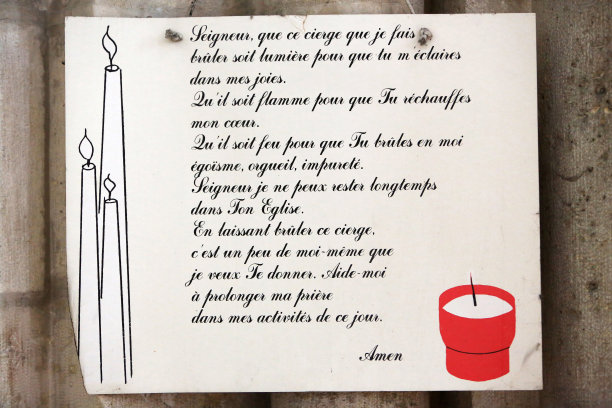 Seigneur, que ce cierge que je fais
brûler soit lumière pour que tu m'éclaires
dans mes joies.
Qu'il soit flamme pour que Tu réchauffes
mon cœur.
Qu'il soit feu pour que Tu brûles en moi
égoïsme, orgueil, impureté.
Seigneur je ne peux rester longtemps
dans Ton Eglise.
En laissant brûler ce cierge,
c'est un peu de moi-même que
je veux Te donner. Aide-moi
à prolonger ma prière
dans mes activités de ce jour.
Amen